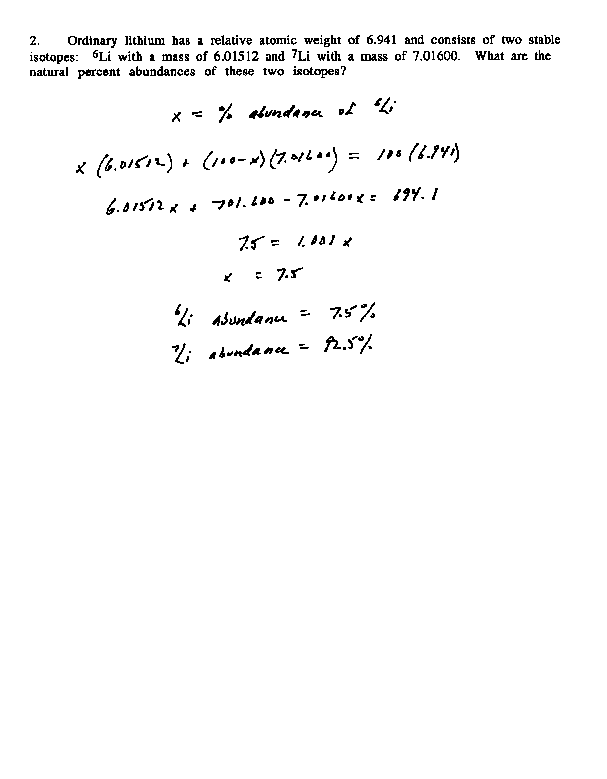 2. Ordinary lithium has a relative atomic weight of 6.941 and consists of two stable
isotopes: ⁶Li with a mass of 6.01512 and ⁷Li with a mass of 7.01600. What are the
natural percent abundances of these two isotopes?
x = % abundance of ⁶Li
x (6.01512) + (100-x)(7.01600) = 100 (6.941)
6.01512 x + 701.600 - 7.01600x = 694.1
7.5 = 1.001 x
x = 7.5
⁶Li abundance = 7.5%
⁷Li abundance = 92.5%